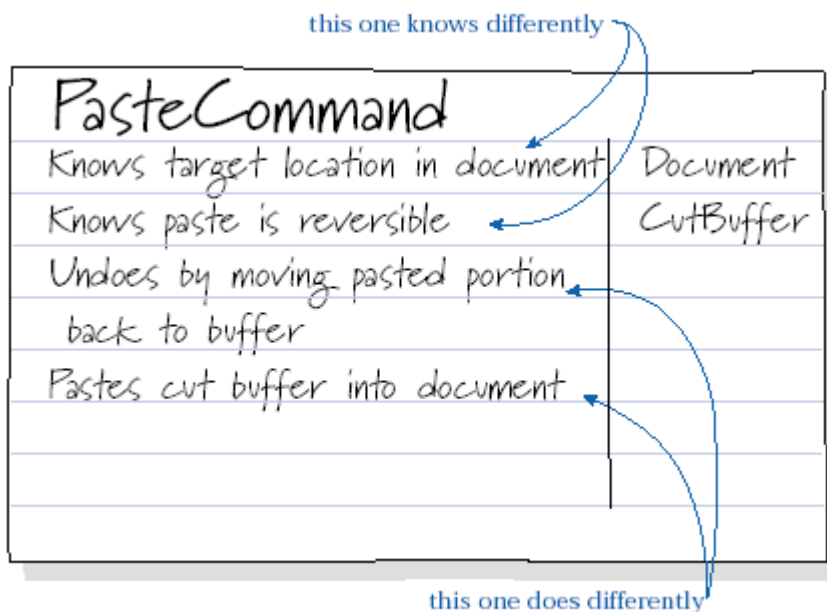 this one knows differently
PasteCommand
Knows target location in document
Document
Knows paste is reversible
CutBuffer
Undoes by moving pasted portion
back to buffer
Pastes cut buffer into document
this one does differently